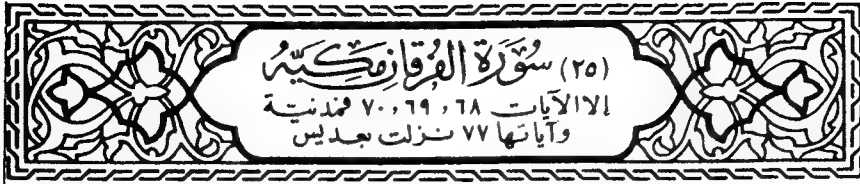 (٢٥) سُورَة الفُرقان مَكِيَّة
إلا الآيات ٦٨ ، ٦٩ ، ٧٠ فمدنية
وآياتها ٧٧ نزلت بعد يس